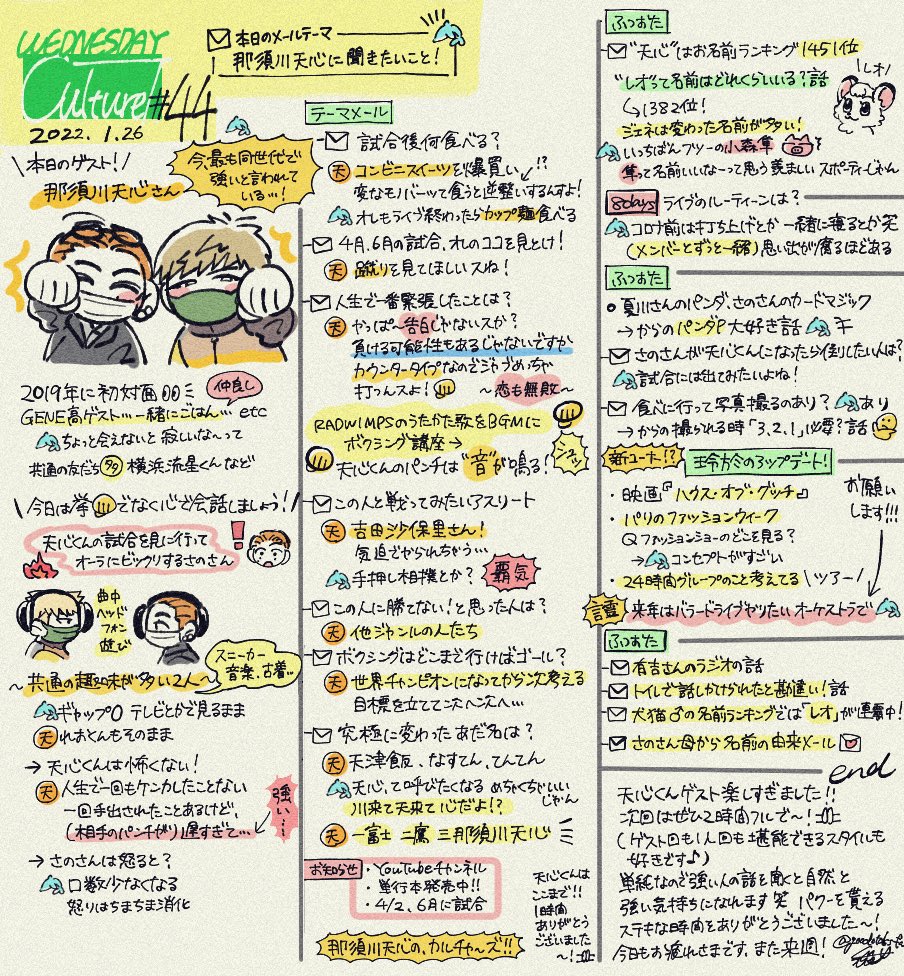 WEDNESDAY
Culture! #44
2022. 1. 26
本日のメールテーマ
那須川天心に聞きたいこと!
\本日のゲスト!/
那須川天心さん
今、最も同世代で
強いと言われて
いる…!
2019年に初対面
仲良し
GENE高ゲスト…一緒にごはん…etc
ちょっと会えないと寂しいな〜って
共通の友だち 多 横浜流星くんなど
\今日は拳でなく心で会話しましょう!/
天心くんの試合を見に行って
オーラにビックリするさのさん
曲中
ヘッド
フォン
遊び
スニーカー
音楽、古着…
〜共通の趣味が多い2人〜
ギャップ0 テレビとかで見るまま
天 れおくんもそのまま
→天心くんは怖くない!
天 人生で一回もケンカしたことない
一回手出されたことあるけど、
(相手のパンチが)遅すぎて…
強い…
→さのさんは怒ると?
口数少なくなる
怒りはちまちま消化
テーマメール
試合後何食べる?
天 コンビニスイーツを爆買い!?
変なモノバーッて食うと逆整いするんすよ!
オレもライブ終わったらカップ麺食べる
4月、6月の試合、オレのココを見とけ!
天 蹴りを見てほしいスね!
人生で一番緊張したことは?
天 やっぱ〜告白じゃないスか?
負ける可能性もあるじゃないですか
カウンタータイプなのでジャブめっちゃ
打つんスよ! 〜恋も無敗〜
RADWIMPSのうたかた歌をBGMに
ボクシング講座→
天心くんのパンチは“音”が鳴る!
シュッ
この人と戦ってみたいアスリート
天 吉田沙保里さん!
気迫でやられちゃう…
手押し相撲とか? 覇気
この人に勝てない!と思った人は?
天 他ジャンルの人たち
ボクシングはどこまで行けばゴール?
天 世界チャンピオンになってから次考える
目標を立てて次へ次へ…
究極に変わったあだ名は?
天 天津飯、なすてん、てんてん
天心、て呼びたくなる めちゃくちゃいい
じゃん
川来て天来て心だよ!?
天 一富士 二鷹 三那須川天心
お知らせ
・YouTubeチャンネル
・単行本発売中!!
・4/2、6月に試合
天心くんは
ここまで!!
1時間
ありがとう
ございました
〜!
那須川天心の、カルチャ〜ズ!!
ふつおた
“天心”はお名前ランキング1451位
“レオ”って名前はどれくらいいる?話
↳1382位!
\レオ/
ジェネは変わった名前が多い!
いっちばんフツーの小森隼
隼って名前いいなーって思う羨ましいスポーティじゃん
8days ライブのルーティーンは?
コロナ前は打ち上げとか一緒に寝るとか笑
(メンバーとずっと一緒)思い出が腐るほどある
ふつおた
夏川さんのパンダ、さのさんのカードマジック
→からのパンダP大好き話
さのさんが天心くんになったら倒したい人は?
試合には出てみたいよね!
食べに行って写真撮るのあり? あり
→からの撮られる時「3、2、1」必要?話
新コーナー!? 玲於のアップデート!
・映画『ハウス・オブ・グッチ』
お願い
します!!!
・パリのファッションウィーク
Qファッションショーのどこを見る?
→コンセプトがすごい
・24時間グループのこと考えてる \ツアー/
言霊 来年はバラードライブやりたいオーケストラで
ふつおた
有吉さんのラジオの話
トイレで話しかけられたと勘違い!話
犬猫♂の名前ランキングでは「レオ」が連覇中!
さのさん母から名前の由来メール
end
天心くんゲスト楽しすぎました!!
次回はぜひ2時間フルで〜!
(ゲスト回も1人回も堪能できるスタイルも
好きです♪)
単純なので強い人の話を聞くと自然と
強い気持ちになれます笑 パワーを貰える
ステキな時間をありがとうございました〜!
今日もお疲れさまです。また来週!